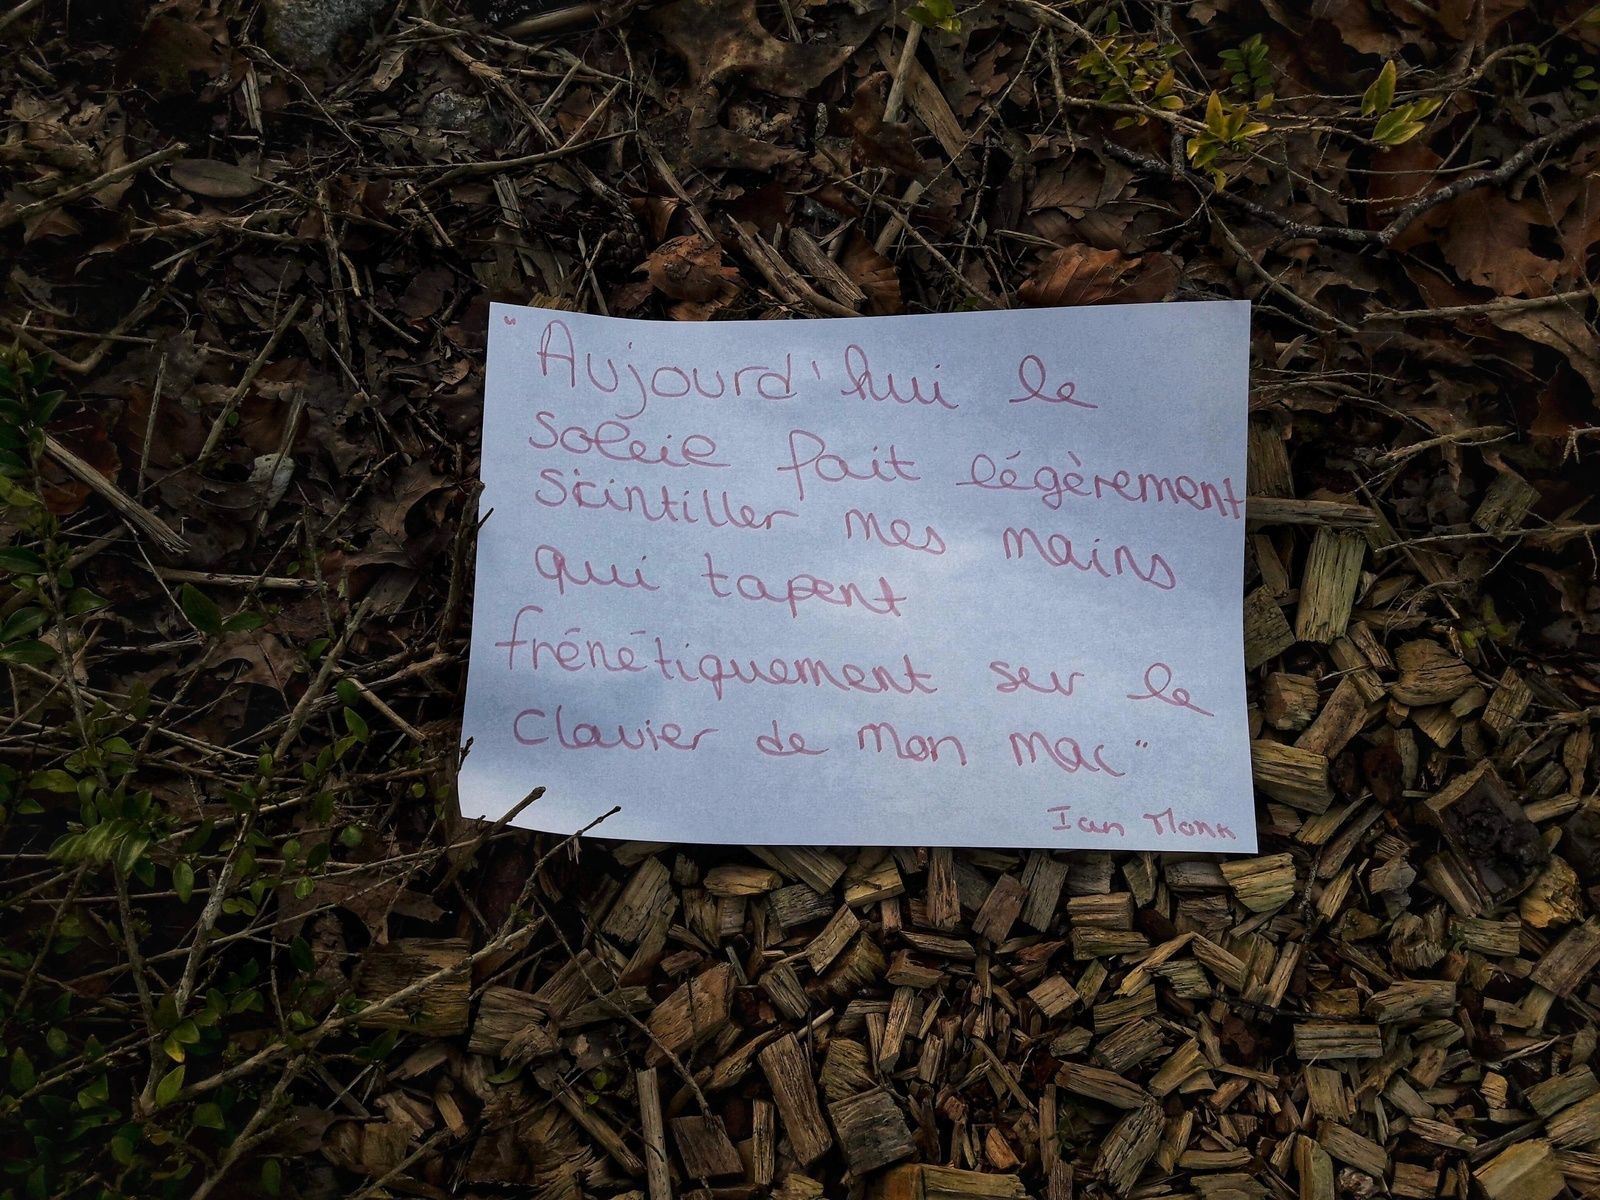 "Aujourd'hui le
soleil fait légèrement
scintiller mes mains
qui tapent
frénétiquement sur le
clavier de mon mac"
Ian Monk